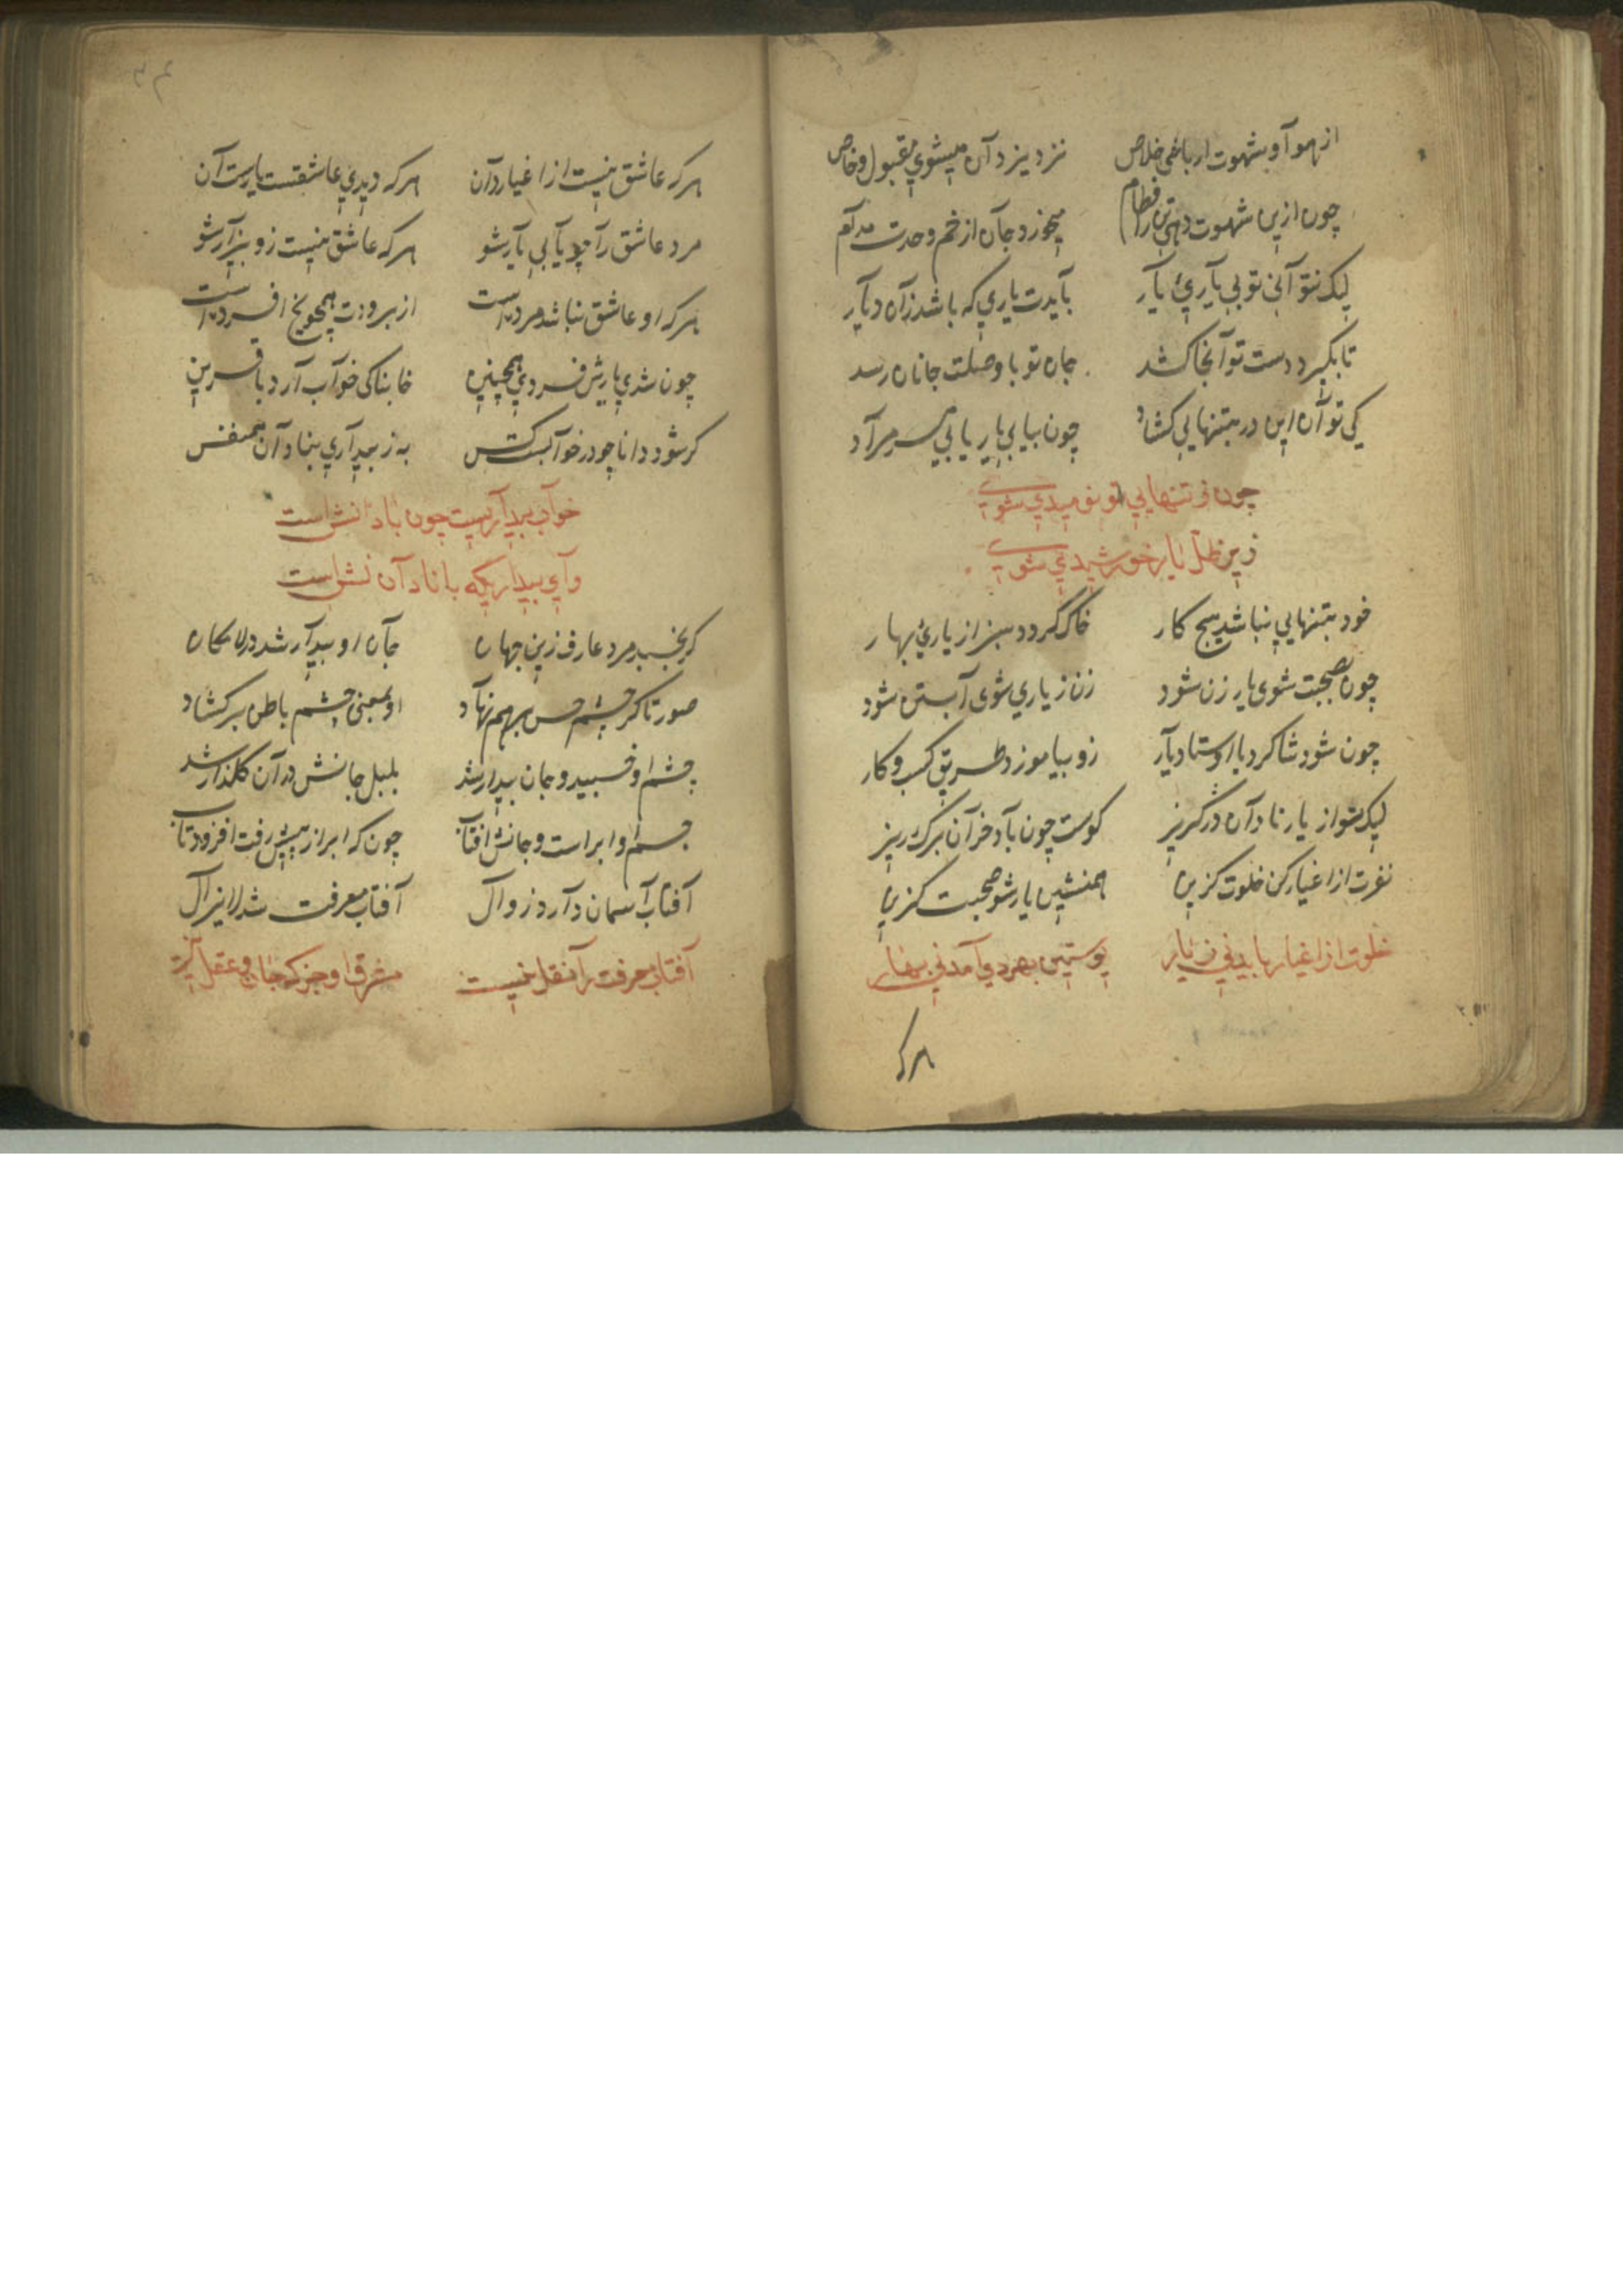 از هوا و شهوت ار باشی خلاص نزد یزدان میشوی مقبول و خاص
چون ازین شهوت دهی تن را فطام میخورد جان از خم وحدت مدام
لیک نتوانی تو بی یاریٔ یار بایدت یاری که باشد زان دیار
تا بگیرد دست تو آنجا کشد جان تو با وصلت جانان رسد
کی توان این در بتنهایی کشاد چون بیابی یار یابی سر مراد
چون ز تنهایی تو نومیدی شوی
زیر ظل یار خورشیدی شوی
خود بتنهایی نباشد هیچ کار خاک گردد سبز از یاریٔ بهار
چون بصحبت شوی یار زن شود زن ز یاری شوی آبستن شود
چون شود شاکرد با اوستاد یار زو بیاموزد طریق کسب و کار
لیک شو از یار نادان در گریز کوست چون باد خزان برک ریز
نفرت از اغیار کن خلوت گزین همنشین یار شو صحبت گزین
خلوت از اغیار باید نی ز یار پوستین بهر دی آمد نی بهار
هرکه
هرکه عاشق نیست از اغیار دان هرکه دیدی عاشقست یارست آن
مرد عاشق را چو یابی یار شو هرکه عاشق نیست زو بیزار شو
هرکه او عاشق نباشد مرده است از برودت همچو یخ افسرده است
چون شدی یارش فسردی همچنین خابناکی خواب آرد با قرین
کر شود دانا چو در خواب کس به ز بیداری بنادان همنفس
خواب بیداریست چون با دانش است
وای بیداریکه با نادان نشست
کر بخسبد مرد عارف زین جهان جان او بیدار شد در لامکان
صورتا کر چشم حس بر هم نهاد او بمعنی چشم باطن بر کشاد
چشم او خسبید و جان بیدار شد بلبل جانش در آن کلذار شد
جسم او ابر است و جانش آفتاب چون که ابر از پیش رفت افزود تاب
آفتاب آسمان دارد زوال آفتاب معرفت شد لایزال
آفتاب معرفت را نقل نیست مشرق او جز که جان و عقل نیست